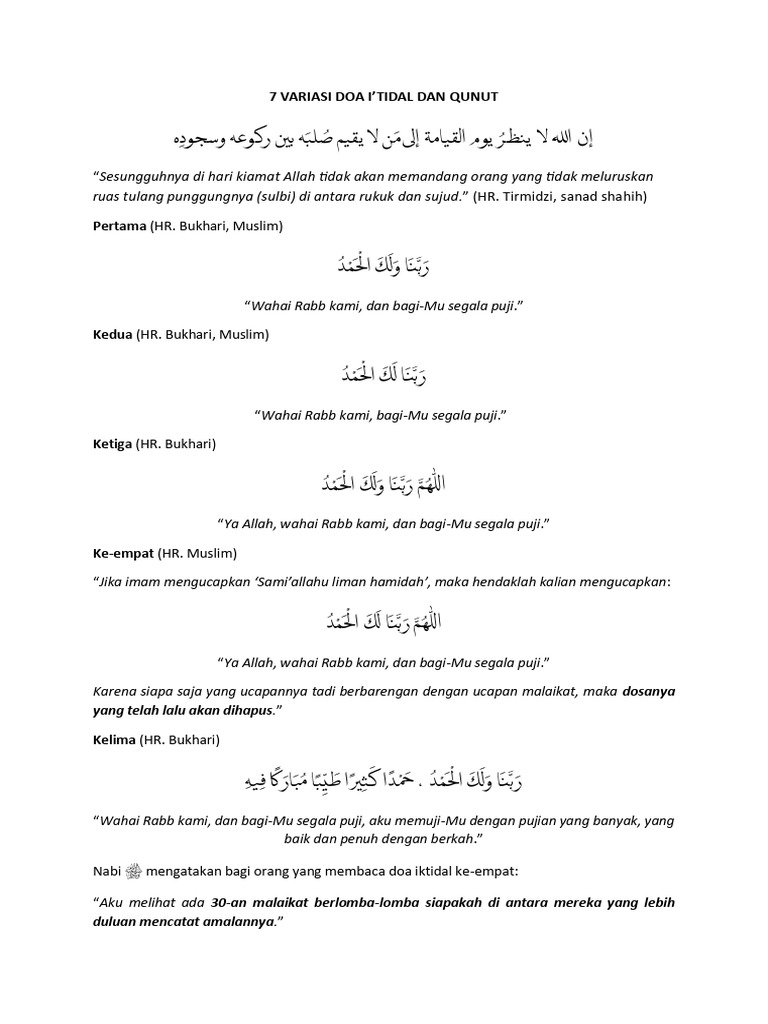 7 VARIASI DOA I’TIDAL DAN QUNUT
إن الله لا ينظرُ يوم القيامة إلى مَن لا يقيم صُلبَه بين ركوعه وسجودِه
“Sesungguhnya di hari kiamat Allah tidak akan memandang orang yang tidak meluruskan
ruas tulang punggungnya (sulbi) di antara rukuk dan sujud.” (HR. Tirmidzi, sanad shahih)
Pertama (HR. Bukhari, Muslim)
رَبَّنَا وَلَكَ الْحَمْدُ
“Wahai Rabb kami, dan bagi-Mu segala puji.”
Kedua (HR. Bukhari, Muslim)
رَبَّنَا لَكَ الْحَمْدُ
“Wahai Rabb kami, bagi-Mu segala puji.”
Ketiga (HR. Bukhari)
اللّٰهُمَّ رَبَّنَا وَلَكَ الْحَمْدُ
“Ya Allah, wahai Rabb kami, dan bagi-Mu segala puji.”
Ke-empat (HR. Muslim)
“Jika imam mengucapkan ‘Sami’allahu liman hamidah’, maka hendaklah kalian mengucapkan:
اللّٰهُمَّ رَبَّنَا لَكَ الْحَمْدُ
“Ya Allah, wahai Rabb kami, dan bagi-Mu segala puji.”
Karena siapa saja yang ucapannya tadi berbarengan dengan ucapan malaikat, maka dosanya
yang telah lalu akan dihapus.”
Kelima (HR. Bukhari)
رَبَّنَا وَلَكَ الْحَمْدُ ، حَمْدًا كَثِيرًا طَيِّبًا مُبَارَكًا فِيهِ
“Wahai Rabb kami, dan bagi-Mu segala puji, aku memuji-Mu dengan pujian yang banyak, yang
baik dan penuh dengan berkah.”
Nabi ﷺ mengatakan bagi orang yang membaca doa iktidal ke-empat:
“Aku melihat ada 30-an malaikat berlomba-lomba siapakah di antara mereka yang lebih
duluan mencatat amalannya.”